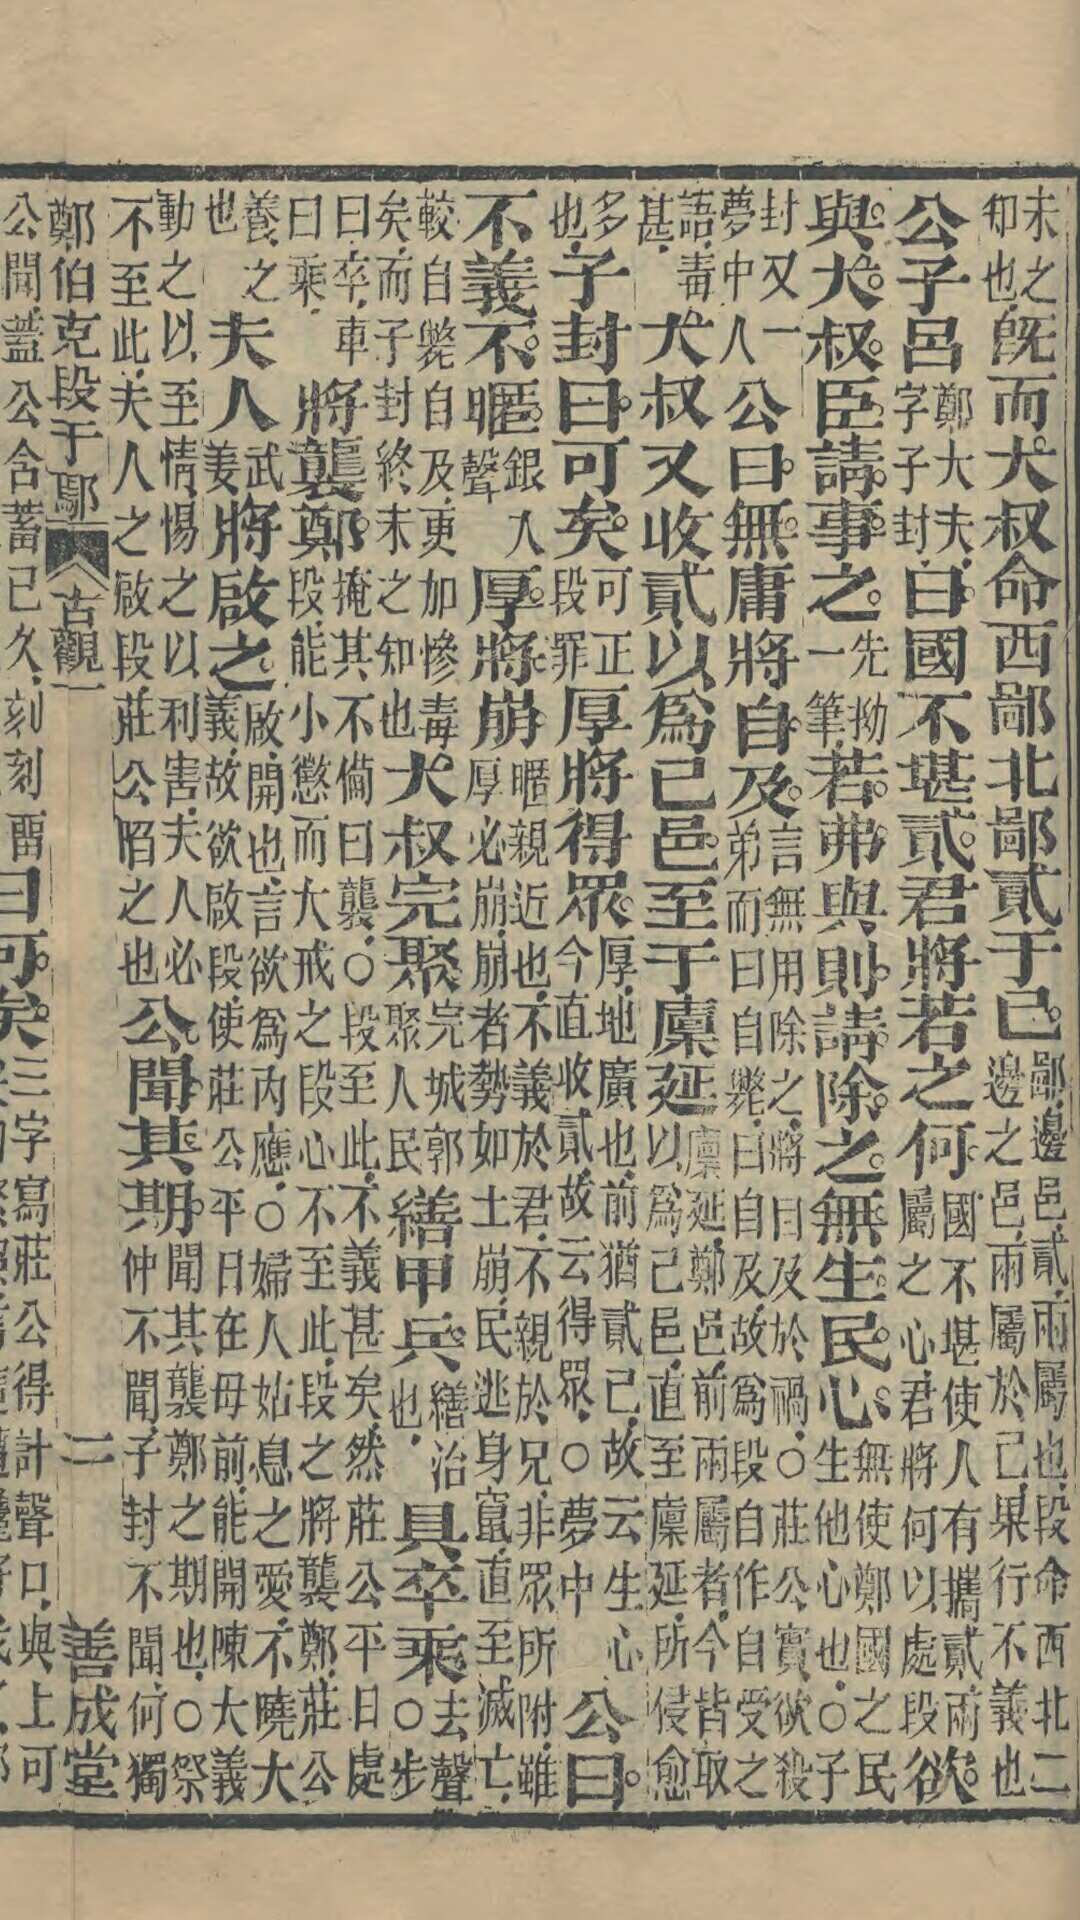 未之却也既而大叔命西鄙北鄙貳于己鄙邊邑貳兩屬也段命西北二邊之邑兩屬於己果行不義也
公子呂鄭大夫字子封曰國不堪貳君將若之何國不堪使人有攜貳兩屬之心君將何以處段欲
與大叔臣請事之先拗一筆若弗與則請除之無生民心無使鄭國之民生他心也○子
封又一夢中人公曰無庸將自及言無用除之將自及於禍○莊公實欲殺弟而曰自斃曰自及故為段自作自受之
語毒甚大叔又收貳以爲己邑至于廩延廩延鄭邑前兩屬者今皆取以爲己邑直至廩延所侵愈
多也子封曰可矣可正段罪厚將得眾厚地廣也前猶貳己故云生心今直收貳故云得眾○夢中公曰
不義不暱銀入聲厚將崩暱親近也不義於君不親於兄非眾所附雖厚必崩崩者勢如土崩民逃身竄直至滅亡
較自斃自及更加慘毒矣而子封終未之知也大叔完聚完城郭聚人民繕甲兵繕治也具卒乘去聲○步
曰卒車曰乘將襲鄭掩其不備曰襲○段至此不義甚矣然莊公平日處段能小懲而大戒之段心不至此段之將襲鄭莊公
養之也夫人武姜將啟之啟開也言欲爲內應○婦人姑息之愛不曉大義故欲啟段使莊公平日在母前能開陳大義
動之以至情惕之以利害夫人必不至此夫人之啟段莊公陷之也公聞其期聞其襲鄭之期也○祭仲不聞子封不聞何獨
鄭伯克段于鄢 古觀一 二 善成堂
公聞蓋公含蓄已久刻刻留曰可矣三字寫莊公得計聲口與上可